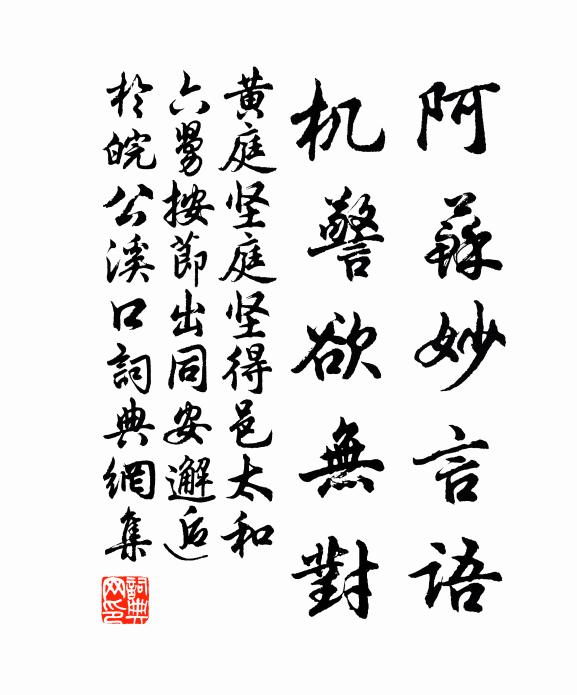 阿蘇妙言語
机警欲無對
黄庭坚庭坚得邑太和
六舅按節出同安邂逅
於皖公溪口詞典網集
詞典網印